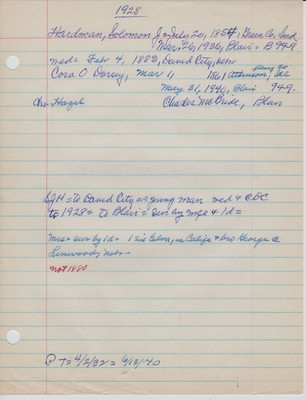 1928
Hardman, Solomon J = July 20, 1854, Green Co, Ind
Mar, 26, 1936, Blair = B 949
med = Feb 4, 1883, David City, nem
Cora O Dorsey, Mar 11 1861 Atkinson, Ill
Henry Co
May 31, 1940, Blair 949
Ch = Hazel Charles McBride, Blair
SJH = to David City as young man med & CDC
to 1928 = to Blair = sur by mfe & 1d =
Mrs = sur by 1d = 1 sis Edna, in Calif & bro George C
Linwood, Neb =
not 1880
P T = 4/2/32 = 6/13/40